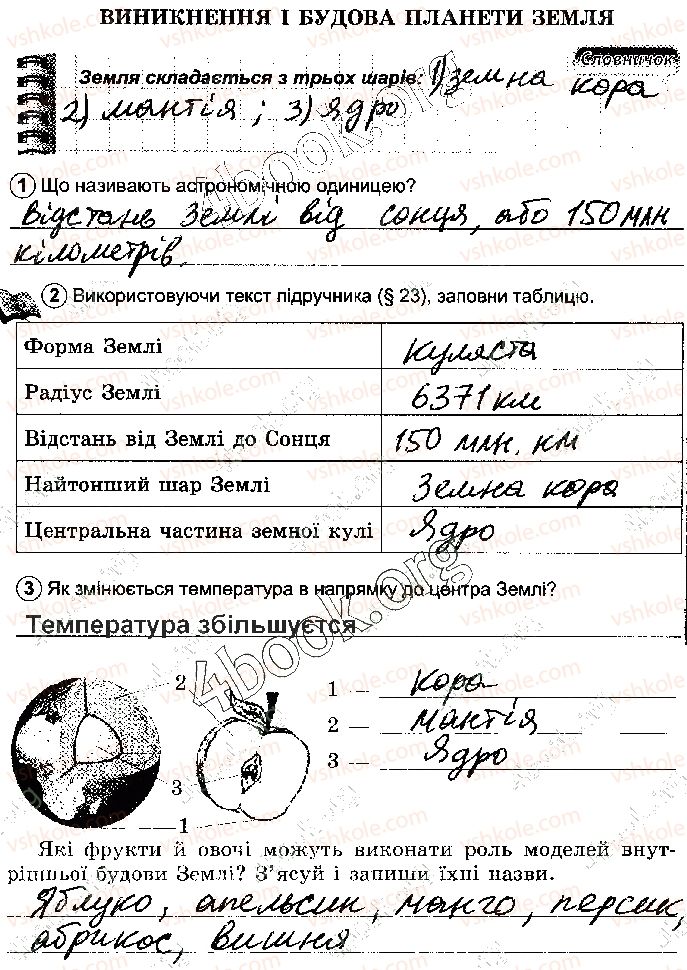 ВИНИКНЕННЯ І БУДОВА ПЛАНЕТИ ЗЕМЛЯ
Словничок
Земля складається з трьох шарів: 1) земна кора
2) мантія ; 3) Ядро
1 Що називають астрономічною одиницею?
Відстань Землі від сонця, або 150 млн
кілометрів.
2 Використовуючи текст підручника (§ 23), заповни таблицю.
Форма Землі куляста
Радіус Землі 6371 км
Відстань від Землі до Сонця 150 млн. км
Найтонший шар Землі Земна кора
Центральна частина земної кулі Ядро
3 Як змінюється температура в напрямку до центра Землі?
Температура збільшуєтся
2
3
1
1 – кора
2 – мантія
3 – Ядро
Які фрукти й овочі можуть виконати роль моделей внут-
рішньої будови Землі? З’ясуй і запиши їхні назви.
Яблуко, апельсин, манго, персик,
абрикос, вишня
4book.org
4book.org
vshkole.com